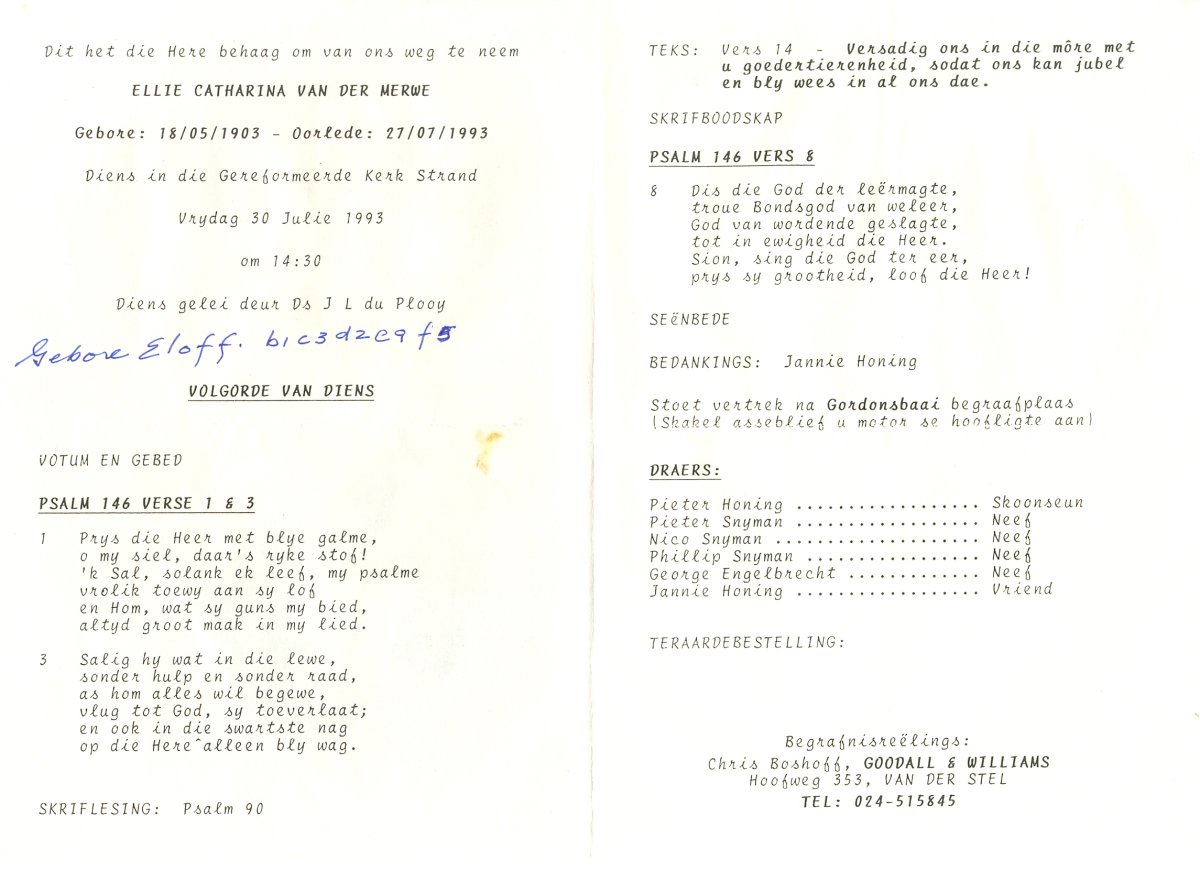 Dit het die Here behaag om van ons weg te neem
ELLIE CATHARINA VAN DER MERWE
Gebore: 18/05/1903 - Oorlede: 27/07/1993
Diens in die Gereformeerde Kerk Strand
Vrydag 30 Julie 1993
om 14:30
Diens gelei deur Ds J L du Plooy
Gebore Eloff. b1c3d2e9f5
VOLGORDE VAN DIENS
VOTUM EN GEBED
PSALM 146 VERSE 1 & 3
1 Prys die Heer met blye galme,
o my siel, daar's ryke stof!
'k Sal, solank ek leef, my psalme
vrolik toewy aan sy lof
en Hom, wat sy guns my bied,
altyd groot maak in my lied.
3 Salig hy wat in die lewe,
sonder hulp en sonder raad,
as hom alles wil begewe,
vlug tot God, sy toeverlaat;
en ook in die swartste nag
op die Here^alleen bly wag.
SKRIFLESING: Psalm 90
TEKS: Vers 14 - Versadig ons in die môre met
u goedertierenheid, sodat ons kan jubel
en bly wees in al ons dae.
SKRIFBOODSKAP
PSALM 146 VERS 8
8 Dis die God der leërmagte,
troue Bondsgod van weleer,
God van wordende geslagte,
tot in ewigheid die Heer.
Sion, sing die God ter eer,
prys sy grootheid, loof die Heer!
SEëNBEDE
BEDANKINGS: Jannie Honing
Stoet vertrek na Gordonsbaai begraafplaas
(Skakel asseblief u motor se hoofligte aan)
DRAERS:
Pieter Honing .................. Skoonseun
Pieter Snyman .................. Neef
Nico Snyman .................... Neef
Phillip Snyman ................. Neef
George Engelbrecht ............. Neef
Jannie Honing .................. Vriend
TERAARDEBESTELLING:
Begrafnisreëlings:
Chris Boshoff, GOODALL & WILLIAMS
Hoofweg 353, VAN DER STEL
TEL: 024-515845